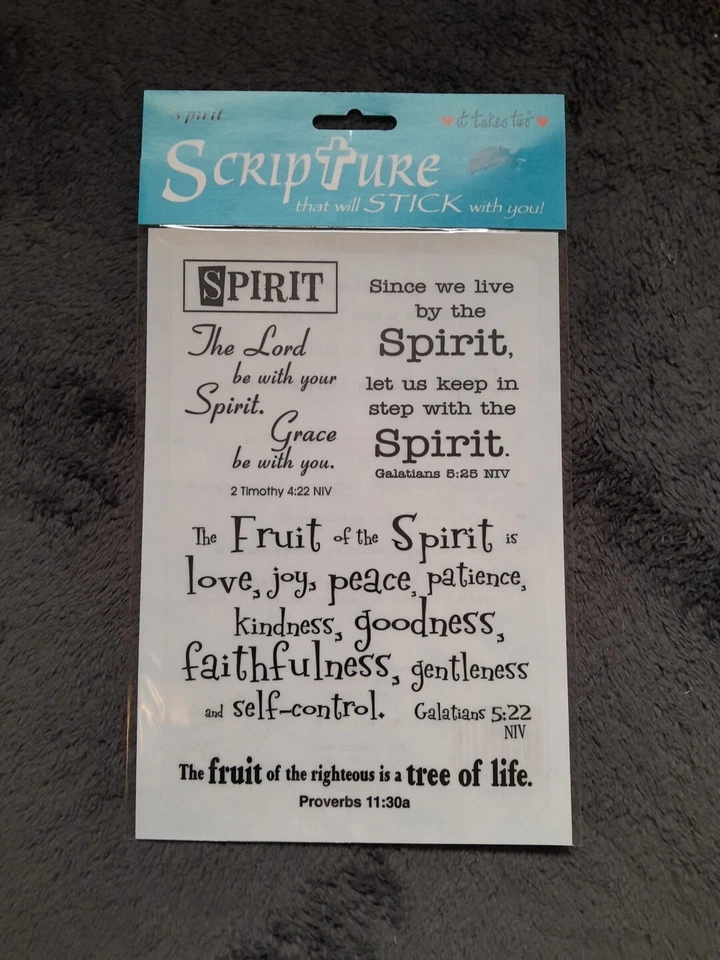 Spirit
it takes two
SCRIPTURE
that will STICK with you!
SPIRIT
The Lord
be with your
Spirit.
Grace
be with you.
2 Timothy 4:22 NIV
Since we live
by the
Spirit,
let us keep in
step with the
Spirit.
Galatians 5:25 NIV
The Fruit of the Spirit is
love, joy, peace, patience,
kindness, goodness,
faithfulness, gentleness
and self-control. Galatians 5:22
NIV
The fruit of the righteous is a tree of life.
Proverbs 11:30a